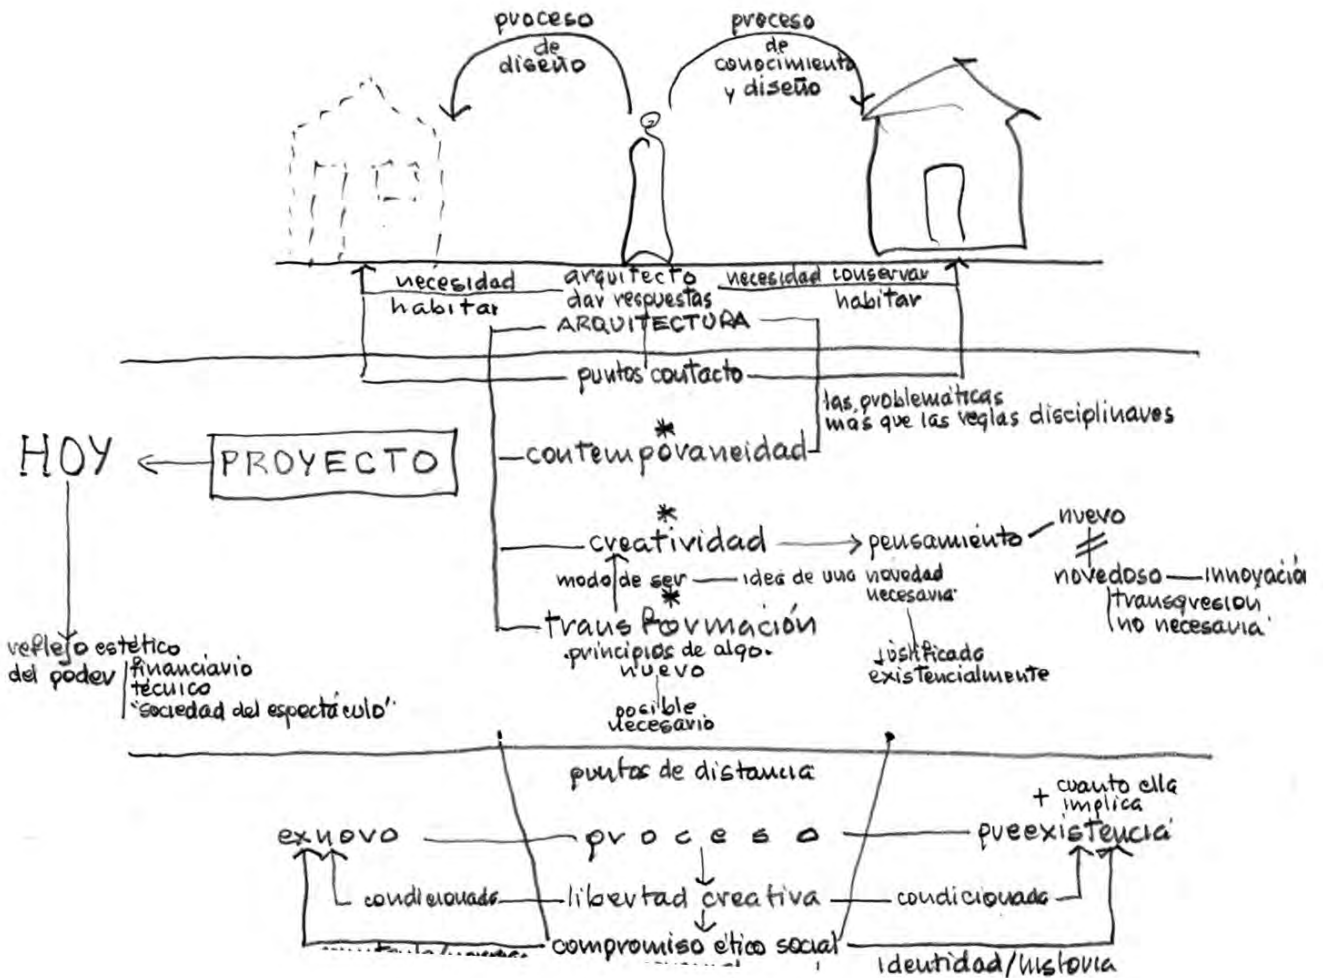 proceso
de
diseño
proceso
de
conocimiento
y diseño
necesidad
habitar
arquitecto
dar respuestas
ARQUITECTURA
necesidad conservar
habitar
puntos contacto
las problemáticas
más que las reglas disciplinares
HOY
PROYECTO
*
contemporaneidad
*
creatividad
pensamiento
nuevo
novedoso
innovació
transgresión
no necesaria
modo de ser
idea de una novedad
necesaria
*
transformación
principios de algo.
nuevo
posible
necesario
justificado
existencialmente
reflejo estético
del poder
financiario
técnico
"sociedad del espectáculo"
puntos de distancia
+ cuanto ella
implica
exnovo
proceso
preexistencia
condicionada
libertad creativa
condicionada
compromiso ético social
identidad/historia